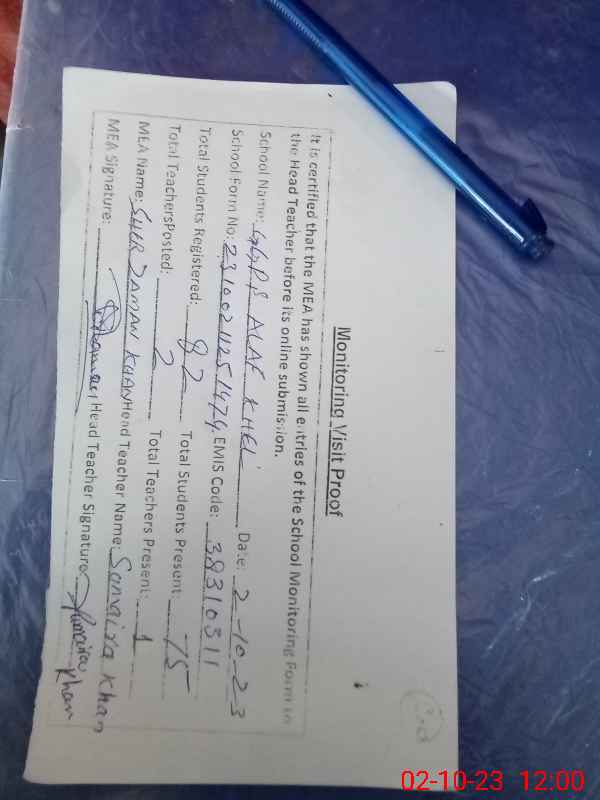 Monitoring Visit Proof
It is certified that the MEA has shown all entries of the School Monitoring Form to
the Head Teacher before its online submission.
School Name: GGPS ALAF KHEL Date: 2-10-23
School Form No: EMIS Code: 38310311
Total Students Registered: 82 Total Students Present: 75
Total TeachersPosted: 2 Total Teachers Present: 1
MEA Name: SHER ZAMAN KHAN Head Teacher Name: Sumaira Khan
MEA Signature: Head Teacher Signature: Sumaira Khan
02-10-23 12:00